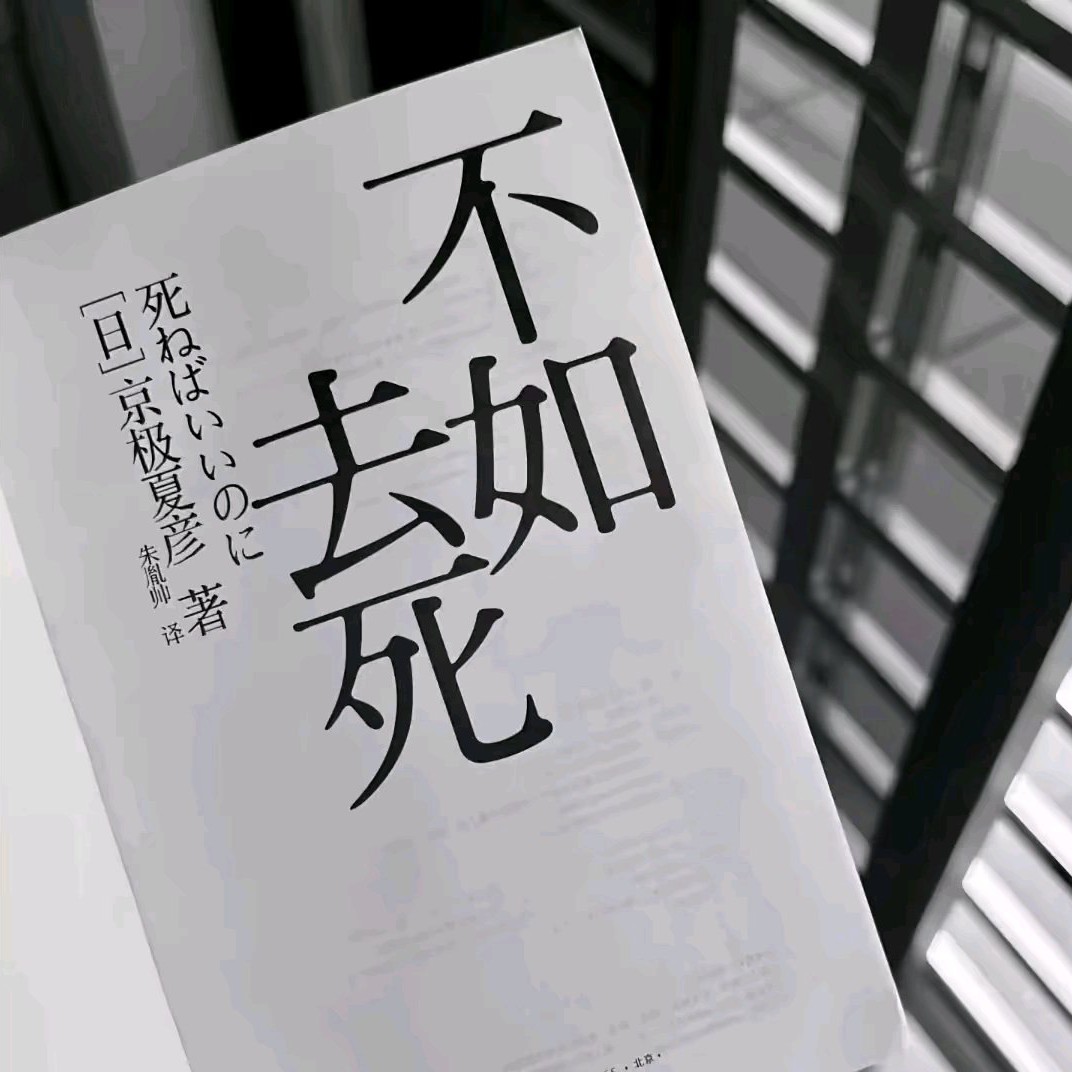 不如去死
死ねばいいのに
［日］京极夏彦 著
朱胤帅 译
·北京·